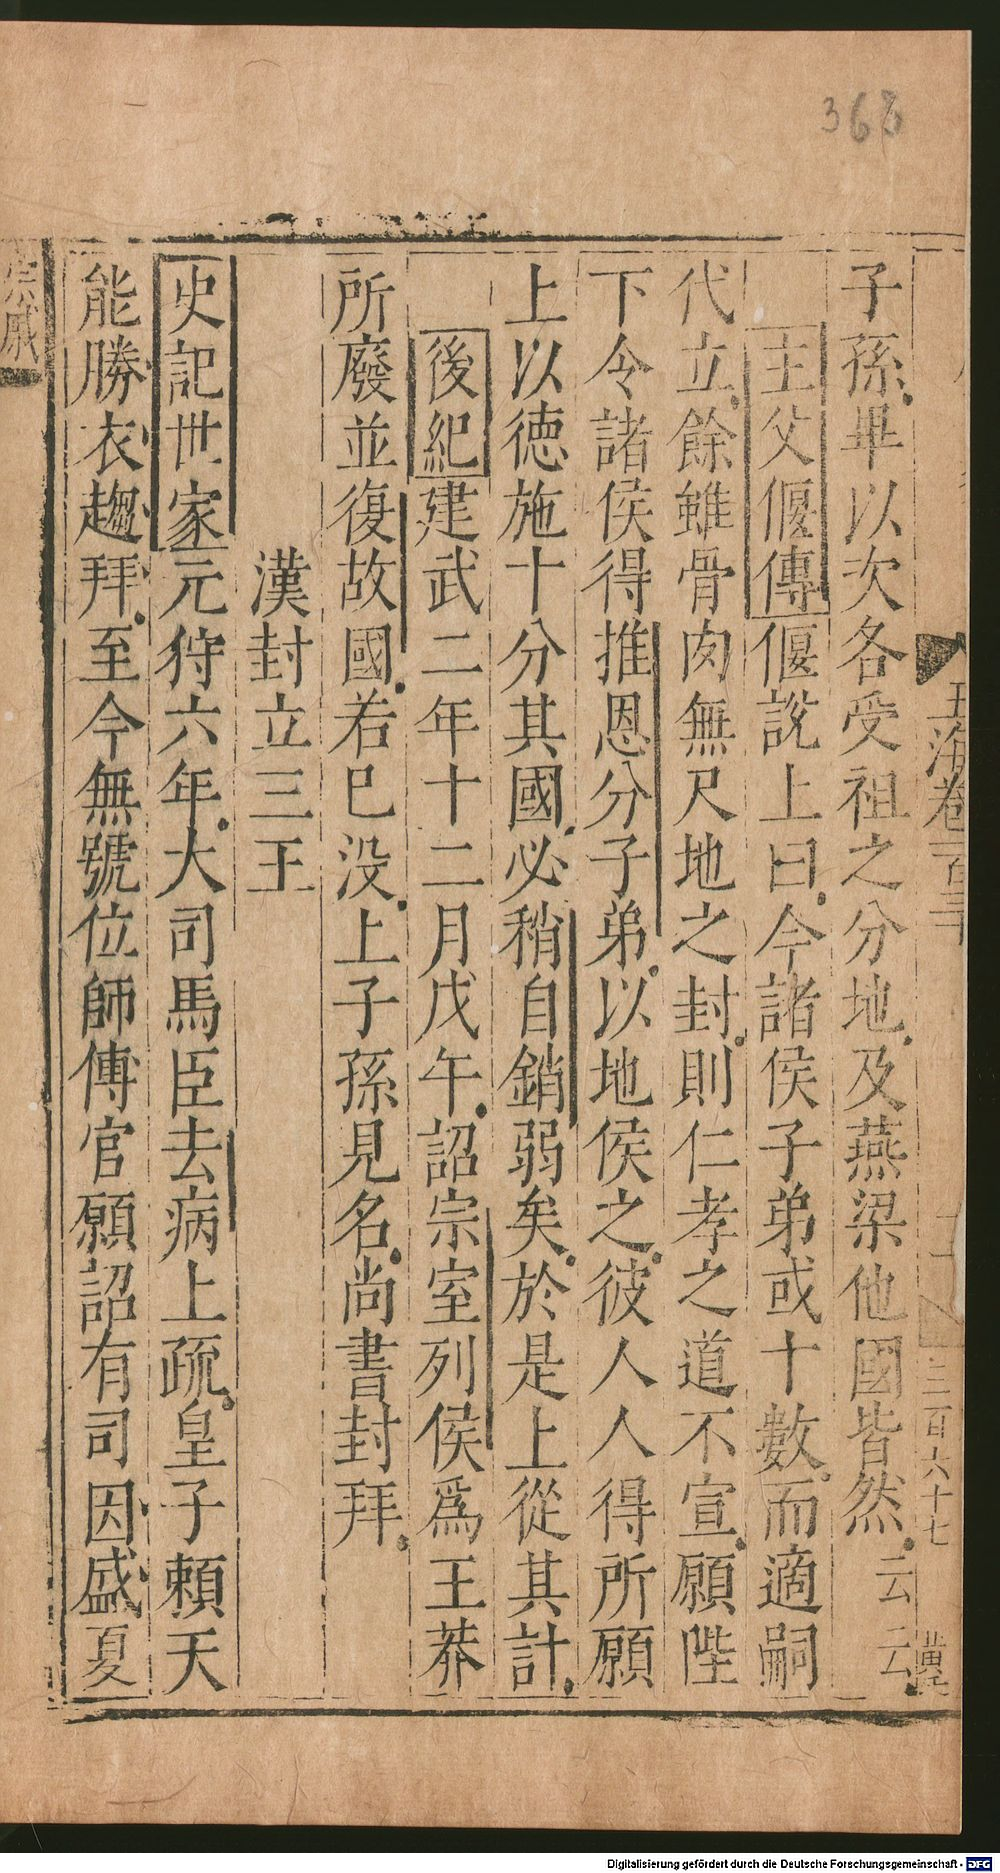 363
玉海卷一百三十
三百六十七
子孫畢以次各受祖之分地及燕梁他國皆然云云
主父偃傳偃說上曰今諸侯子弟或十數而適嗣
代立餘雖骨肉無尺地之封則仁孝之道不宣願陛
下令諸侯得推恩分子弟以地侯之彼人人得所願
上以德施十分其國必稍自銷弱矣於是上從其計
後紀建武二年十二月戊午詔宗室列侯爲王莽
所廢並復故國若已没上子孫見名尚書封拜
漢封立三王
史記世家元狩六年大司馬臣去病上疏皇子賴天
能勝衣趨拜至今無號位師傅官願詔有司因盛夏
宗戚
Digitalisierung gefördert durch die Deutsche Forschungsgemeinschaft - DFG